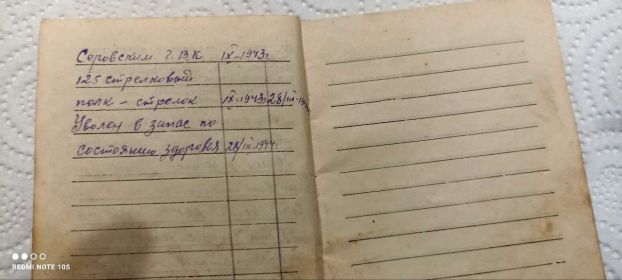 Серовским Г.В.К. IX-1943г.
125 стрелковый
полк - стрелок IX-1943г. 28/III-19
Уволен в запас по
состоянию здоровья 28/III.1944г.
REDMI NOTE 10S